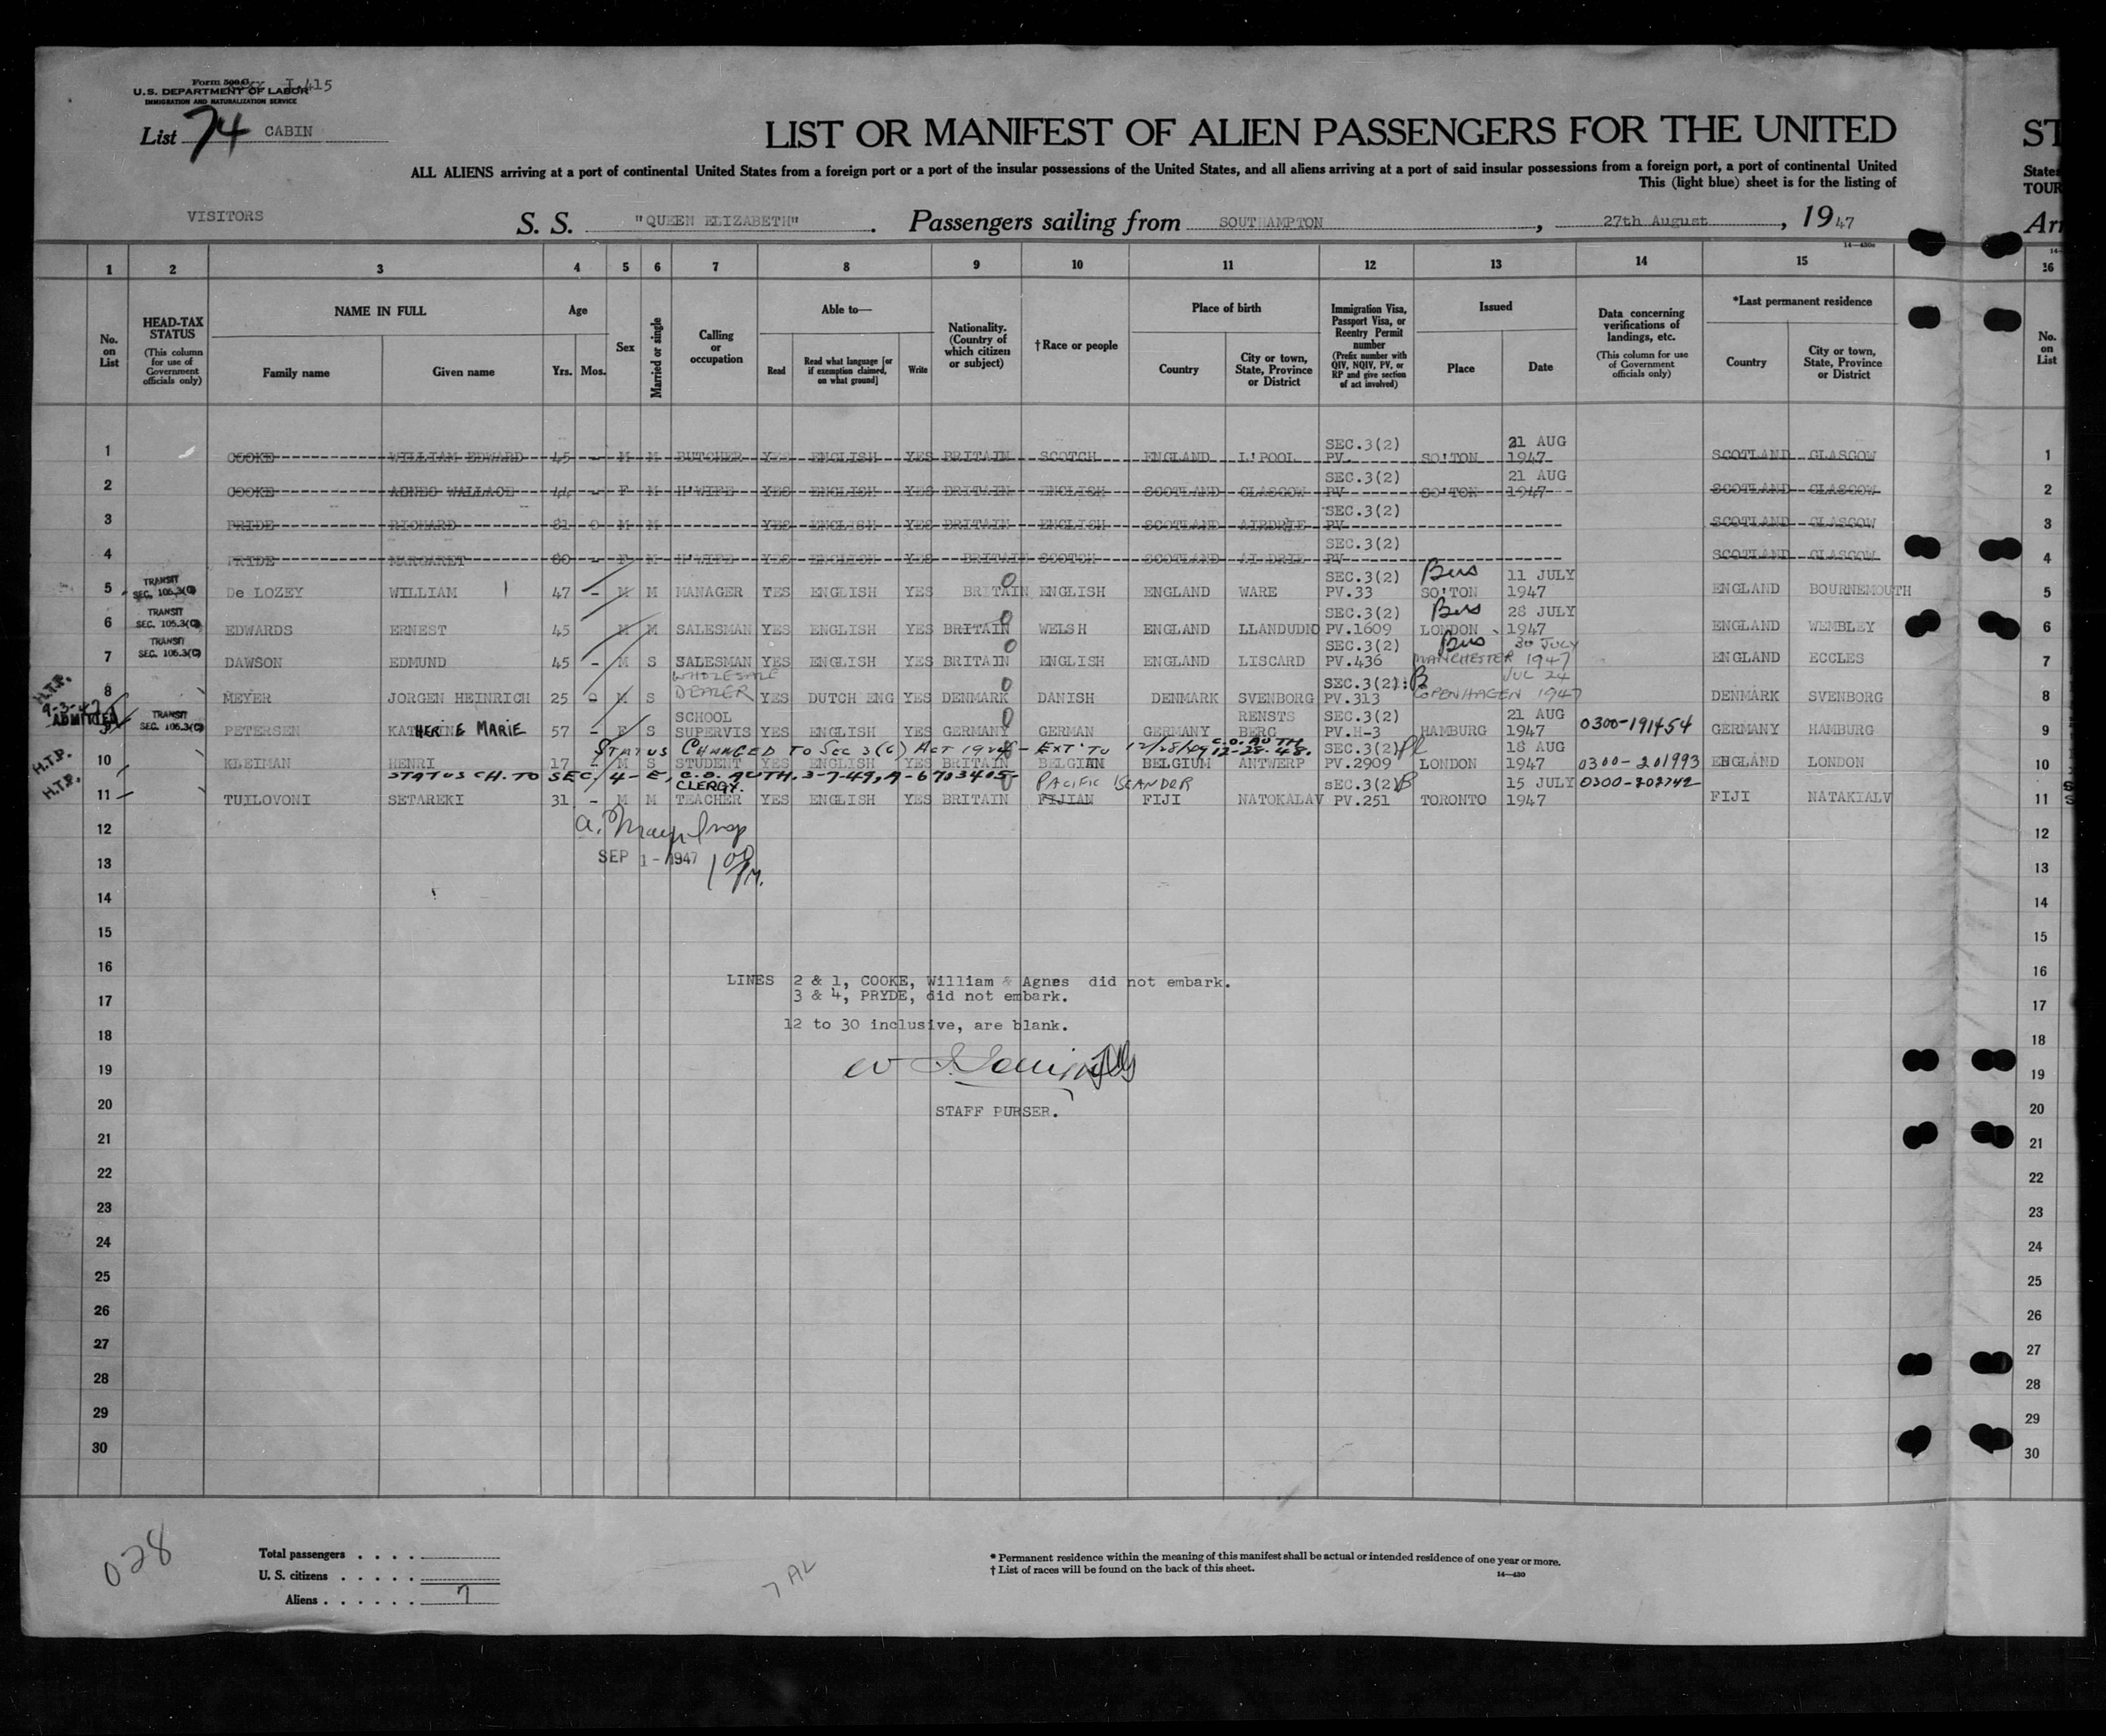 Form 500 G I-415
U.S. DEPARTMENT OF LABOR
IMMIGRATION AND NATURALIZATION SERVICE
List 74 CABIN
LIST OR MANIFEST OF ALIEN PASSENGERS FOR THE UNITED ST
ALL ALIENS arriving at a port of continental United States from a foreign port or a port of the insular possessions of the United States, and all aliens arriving at a port of said insular possessions from a foreign port, a port of continental United States
This (light blue) sheet is for the listing of TOUR
VISITORS S. S. "QUEEN ELIZABETH". Passengers sailing from SOUTHAMPTON, 27th August, 1947 Arr
14—430a
1 2 3 4 5 6 7 8 9 10 11 12 13 14 15 16
No. on List
HEAD-TAX STATUS (This column for use of Government officials only)
NAME IN FULL
Family name Given name
Age
Yrs. Mos.
Sex
Married or single
Calling or occupation
Able to—
Read Read what language [or if exemption claimed, on what ground] Write
Nationality. (Country of which citizen or subject)
†Race or people
Place of birth
Country City or town, State, Province or District
Immigration Visa, Passport Visa, or Reentry Permit number (Prefix number with QIV, NQIV, PV, or RP and give section of act involved)
Issued
Place Date
Data concerning verifications of landings, etc. (This column for use of Government officials only)
*Last permanent residence
Country City or town, State, Province or District
No. on List
1 COOKE WILLIAM EDWARD 45 - M M BUTCHER YES ENGLISH YES BRITAIN SCOTCH ENGLAND L'POOL SEC.3(2) PV. SO'TON 21 AUG 1947 SCOTLAND GLASGOW 1
2 COOKE AGNES WALLACE 44 - F M H'WIFE YES ENGLISH YES BRITAIN ENGLISH SCOTLAND GLASGOW SEC.3(2) PV SO'TON 21 AUG 1947 SCOTLAND GLASGOW 2
3 PRIDE RICHARD 61 M M YES ENGLISH YES BRITAIN ENGLISH SCOTLAND AIRDRIE SEC.3(2) PV SCOTLAND GLASGOW 3
4 PRIDE MARGARET 60 - F M H'WIFE YES ENGLISH YES BRITAIN SCOTCH SCOTLAND AIRDRIE SEC.3(2) PV SCOTLAND GLASGOW 4
5 TRANSIT SEC. 105.3(C) De LOZEY WILLIAM 47 - M M MANAGER YES ENGLISH YES BRITAIN ENGLISH ENGLAND WARE SEC.3(2) PV.33 Bus SO'TON 11 JULY 1947 ENGLAND BOURNEMOUTH 5
6 TRANSIT SEC. 105.3(C) EDWARDS ERNEST 45 M M SALESMAN YES ENGLISH YES BRITAIN WELSH ENGLAND LLANDUDNO SEC.3(2) PV.1609 Bus LONDON 28 JULY 1947 ENGLAND WEMBLEY 6
7 TRANSIT SEC. 105.3(C) DAWSON EDMUND 45 - M S SALESMAN YES ENGLISH YES BRITAIN ENGLISH ENGLAND LISCARD SEC.3(2) PV.436 Bus MANCHESTER 30 JULY 1947 ENGLAND ECCLES 7
H.T.P. 8 MEYER JORGEN HEINRICH 25 M S WHOLESALE DEALER YES DUTCH ENG YES DENMARK DANISH DENMARK SVENBORG SEC.3(2): PV.313 B COPENHAGEN JUL 24 1947 DENMARK SVENBORG 8
9-3-47 ADMITTED 9 TRANSIT SEC. 105.3(C) PETERSEN KATHERINE MARIE 57 - F S SCHOOL SUPERVIS YES ENGLISH YES GERMANY GERMAN GERMANY RENSTS BERG SEC.3(2) PV.H-3 HAMBURG 21 AUG 1947 0300-191454 GERMANY HAMBURG 9
STATUS CHANGED TO SEC 3(6) ACT 1924 - EXT. TO 12/28/49 C.O. AUTH 12-28-48.
H.T.P. 10 KLEIMAN HENRI 17 - M S STUDENT YES ENGLISH YES BRITAIN BELGIAN BELGIUM ANTWERP SEC.3(2) Pl PV.2909 LONDON 18 AUG 1947 0300-201993 ENGLAND LONDON 10
STATUS CH. TO SEC. 4-E, C.O. AUTH. 3-7-49, A-6703405-
H.T.P. 11 TUILOVONI SETAREKI 31 - M M CLERGY. TEACHER YES ENGLISH YES BRITAIN PACIFIC ISLANDER FIJIAN FIJI NATOKALAV SEC.3(2) B PV.251 TORONTO 15 JULY 1947 0300-202742 FIJI NATAKIALV 11
12 12
SEP 1 - 1947 1 00 PM.
13 13
14 14
15 15
16 16
LINES 2 & 1, COOKE, William & Agnes did not embark.
3 & 4, PRYDE, did not embark.
17 17
12 to 30 inclusive, are blank.
18 18
19 19
20 20
STAFF PURSER.
21 21
22 22
23 23
24 24
25 25
26 26
27 27
28 28
29 29
30 30
028
Total passengers . . . .
U. S. citizens . . . . .
Aliens . . . . . . 7
7 AL
* Permanent residence within the meaning of this manifest shall be actual or intended residence of one year or more.
† List of races will be found on the back of this sheet.
14—430